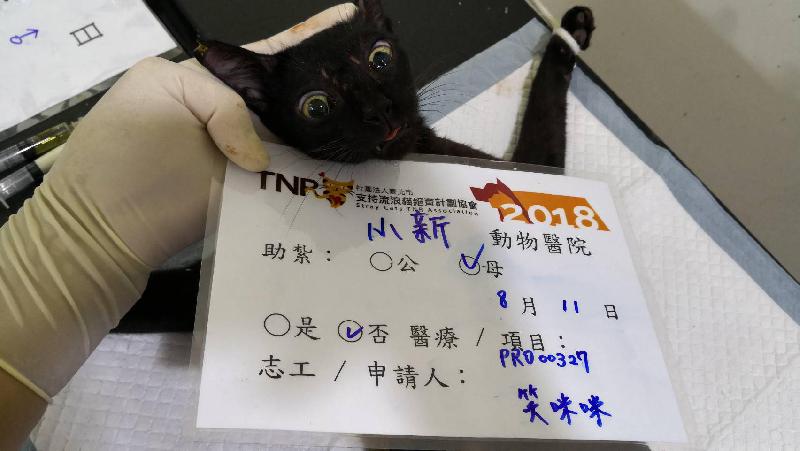 TNR 社團法人臺北市
支持流浪貓絕育計劃協會
Stray Cats TNR Association
2018
小新 動物醫院
助紮： ○公 ○母
8月11日
○是 ○否 醫療 / 項目：
PRO00327
志工 / 申請人：
笑咪咪